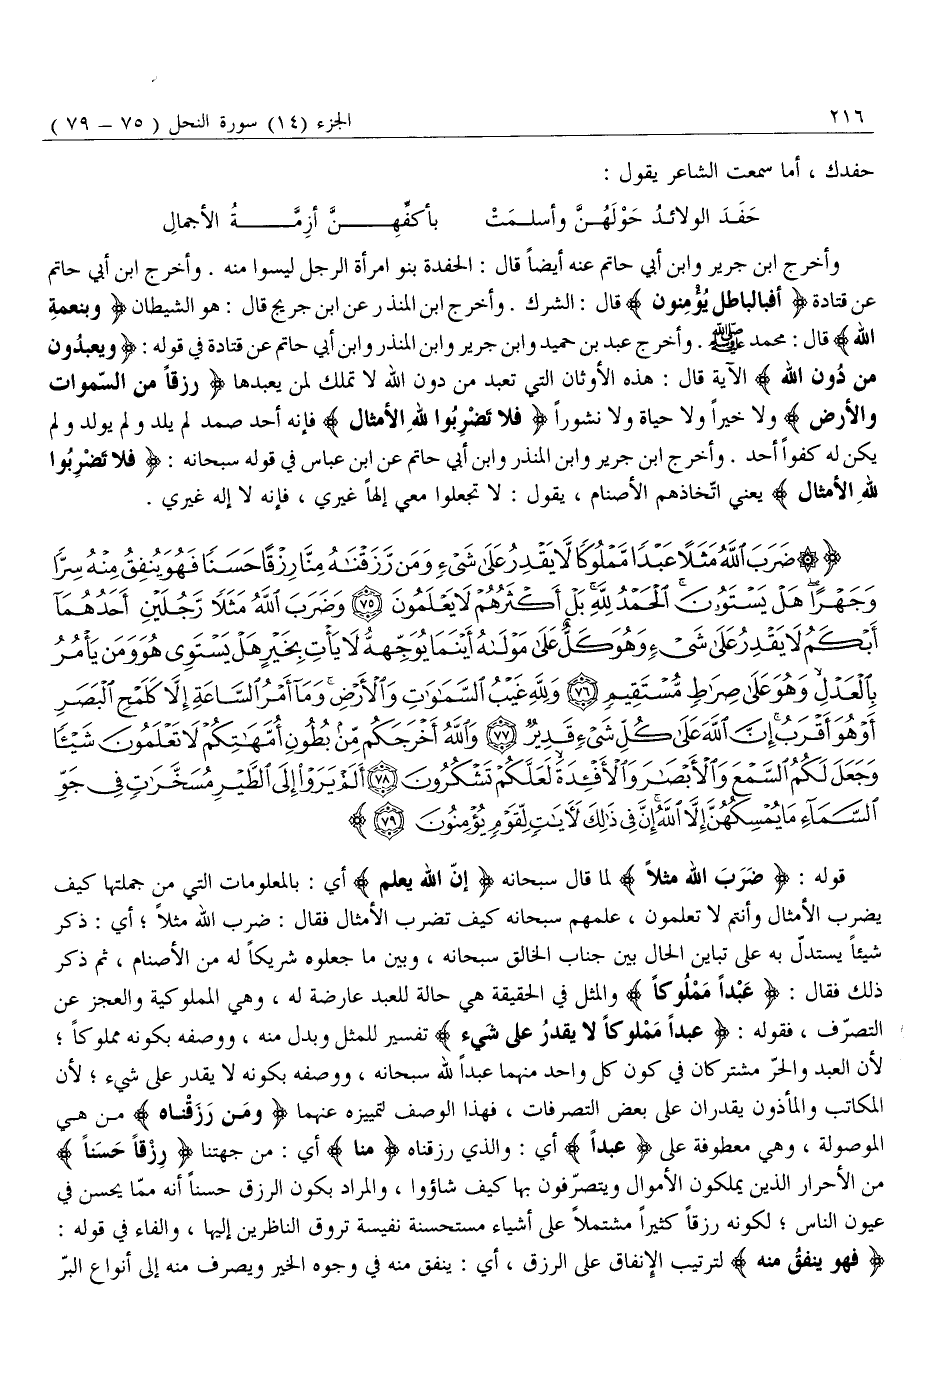 ٢١٦ الجزء (١٤) سورة النحل ( ٧٥ – ٧٩ )
حفدك ، أما سمعت الشاعر يقول :
حَفَدَ الولائدُ حَوْلَهُنَّ وأسلمَتْ بأكفِّهِنَّ أزِمَّةُ الأجمالِ
وأخرج ابن جرير وابن أبي حاتم عنه أيضاً قال : الحفدة بنو امرأة الرجل ليسوا منه . وأخرج ابن أبي حاتم
عن قتادة ﴿ أفبالباطل يُؤْمِنون ﴾ قال : الشرك . وأخرج ابن المنذر عن ابن جريج قال : هو الشيطان ﴿ وبنعمةِ
الله ﴾ قال : محمد ﷺ . وأخرج عبد بن حميد وابن جرير وابن المنذر وابن أبي حاتم عن قتادة في قوله : ﴿ ويعبدُون
من دُون الله ﴾ الآية قال : هذه الأوثان التي تعبد من دون الله لا تملك لمن يعبدها ﴿ رزقاً من السّموات
والأرض ﴾ ولا خيراً ولا حياة ولا نشوراً ﴿ فلا تَضْرِبُوا للهِ الأمثال ﴾ فإنه أحد صمد لم يلد ولم يولد ولم
يكن له كفواً أحد . وأخرج ابن جرير وابن المنذر وابن أبي حاتم عن ابن عباس في قوله سبحانه : ﴿ فلا تَضْرِبُوا
للهِ الأمثال ﴾ يعني اتّخاذهم الأصنام ، يقول : لا تجعلوا معي إلهاً غيري ، فإنه لا إله غيري .
﴿ ۞ ضَرَبَ ٱللَّهُ مَثَلًا عَبْدًا مَّمْلُوكًا لَّا يَقْدِرُ عَلَىٰ شَىْءٍ وَمَن رَّزَقْنَـٰهُ مِنَّا رِزْقًا حَسَنًا فَهُوَ يُنفِقُ مِنْهُ سِرًّا
وَجَهْرًا ۖ هَلْ يَسْتَوُۥنَ ۚ ٱلْحَمْدُ لِلَّهِ ۚ بَلْ أَكْثَرُهُمْ لَا يَعْلَمُونَ ﴿٧٥﴾ وَضَرَبَ ٱللَّهُ مَثَلًا رَّجُلَيْنِ أَحَدُهُمَآ
أَبْكَمُ لَا يَقْدِرُ عَلَىٰ شَىْءٍ وَهُوَ كَلٌّ عَلَىٰ مَوْلَىٰهُ أَيْنَمَا يُوَجِّههُّ لَا يَأْتِ بِخَيْرٍ هَلْ يَسْتَوِى هُوَ وَمَن يَأْمُرُ
بِٱلْعَدْلِ ۙ وَهُوَ عَلَىٰ صِرَٰطٍ مُّسْتَقِيمٍ ﴿٧٦﴾ وَلِلَّهِ غَيْبُ ٱلسَّمَـٰوَٰتِ وَٱلْأَرْضِ ۚ وَمَآ أَمْرُ ٱلسَّاعَةِ إِلَّا كَلَمْحِ ٱلْبَصَرِ
أَوْ هُوَ أَقْرَبُ ۚ إِنَّ ٱللَّهَ عَلَىٰ كُلِّ شَىْءٍ قَدِيرٌ ﴿٧٧﴾ وَٱللَّهُ أَخْرَجَكُم مِّنۢ بُطُونِ أُمَّهَـٰتِكُمْ لَا تَعْلَمُونَ شَيْـًٔا
وَجَعَلَ لَكُمُ ٱلسَّمْعَ وَٱلْأَبْصَـٰرَ وَٱلْأَفْـِٔدَةَ ۙ لَعَلَّكُمْ تَشْكُرُونَ ﴿٧٨﴾ أَلَمْ يَرَوْا۟ إِلَى ٱلطَّيْرِ مُسَخَّرَٰتٍ فِى جَوِّ
ٱلسَّمَآءِ مَا يُمْسِكُهُنَّ إِلَّا ٱللَّهُ ۗ إِنَّ فِى ذَٰلِكَ لَـَٔايَـٰتٍ لِّقَوْمٍ يُؤْمِنُونَ ﴿٧٩﴾ ﴾
قوله : ﴿ ضَرَبَ الله مثلاً ﴾ لما قال سبحانه ﴿ إنّ الله يعلم ﴾ أي : بالمعلومات التي من جملتها كيف
يضرب الأمثال وأنتم لا تعلمون ، علمهم سبحانه كيف تضرب الأمثال فقال : ضرب الله مثلاً ؛ أي : ذكر
شيئاً يستدلّ به على تباين الحال بين جناب الخالق سبحانه ، وبين ما جعلوه شريكاً له من الأصنام ، ثم ذكر
ذلك فقال : ﴿ عَبْداً مَمْلُوكاً ﴾ والمثل في الحقيقة هي حالة للعبد عارضة له ، وهي المملوكية والعجز عن
التصرّف ، فقوله : ﴿ عبداً مَمْلوكاً لا يقدرُ على شَيء ﴾ تفسير للمثل وبدل منه ، ووصفه بكونه مملوكاً ؛
لأن العبد والحرّ مشتركان في كون كل واحد منهما عبداً لله سبحانه ، ووصفه بكونه لا يقدر على شيء ؛ لأن
المكاتب والمأذون يقدران على بعض التصرفات ، فهذا الوصف لتمييزه عنهما ﴿ ومَن رَزَقْناه ﴾ من هي
الموصولة ، وهي معطوفة على ﴿ عبداً ﴾ أي : والذي رزقناه ﴿ منا ﴾ أي : من جهتنا ﴿ رِزْقاً حَسَناً ﴾
من الأحرار الذين يملكون الأموال ويتصرّفون بها كيف شاؤوا ، والمراد بكون الرزق حسناً أنه ممّا يحسن في
عيون الناس ؛ لكونه رزقاً كثيراً مشتملاً على أشياء مستحسنة نفيسة تروق الناظرين إليها ، والفاء في قوله :
﴿ فهو ينفقُ منه ﴾ لترتيب الإنفاق على الرزق ، أي : ينفق منه في وجوه الخير ويصرف منه إلى أنواع البرّ